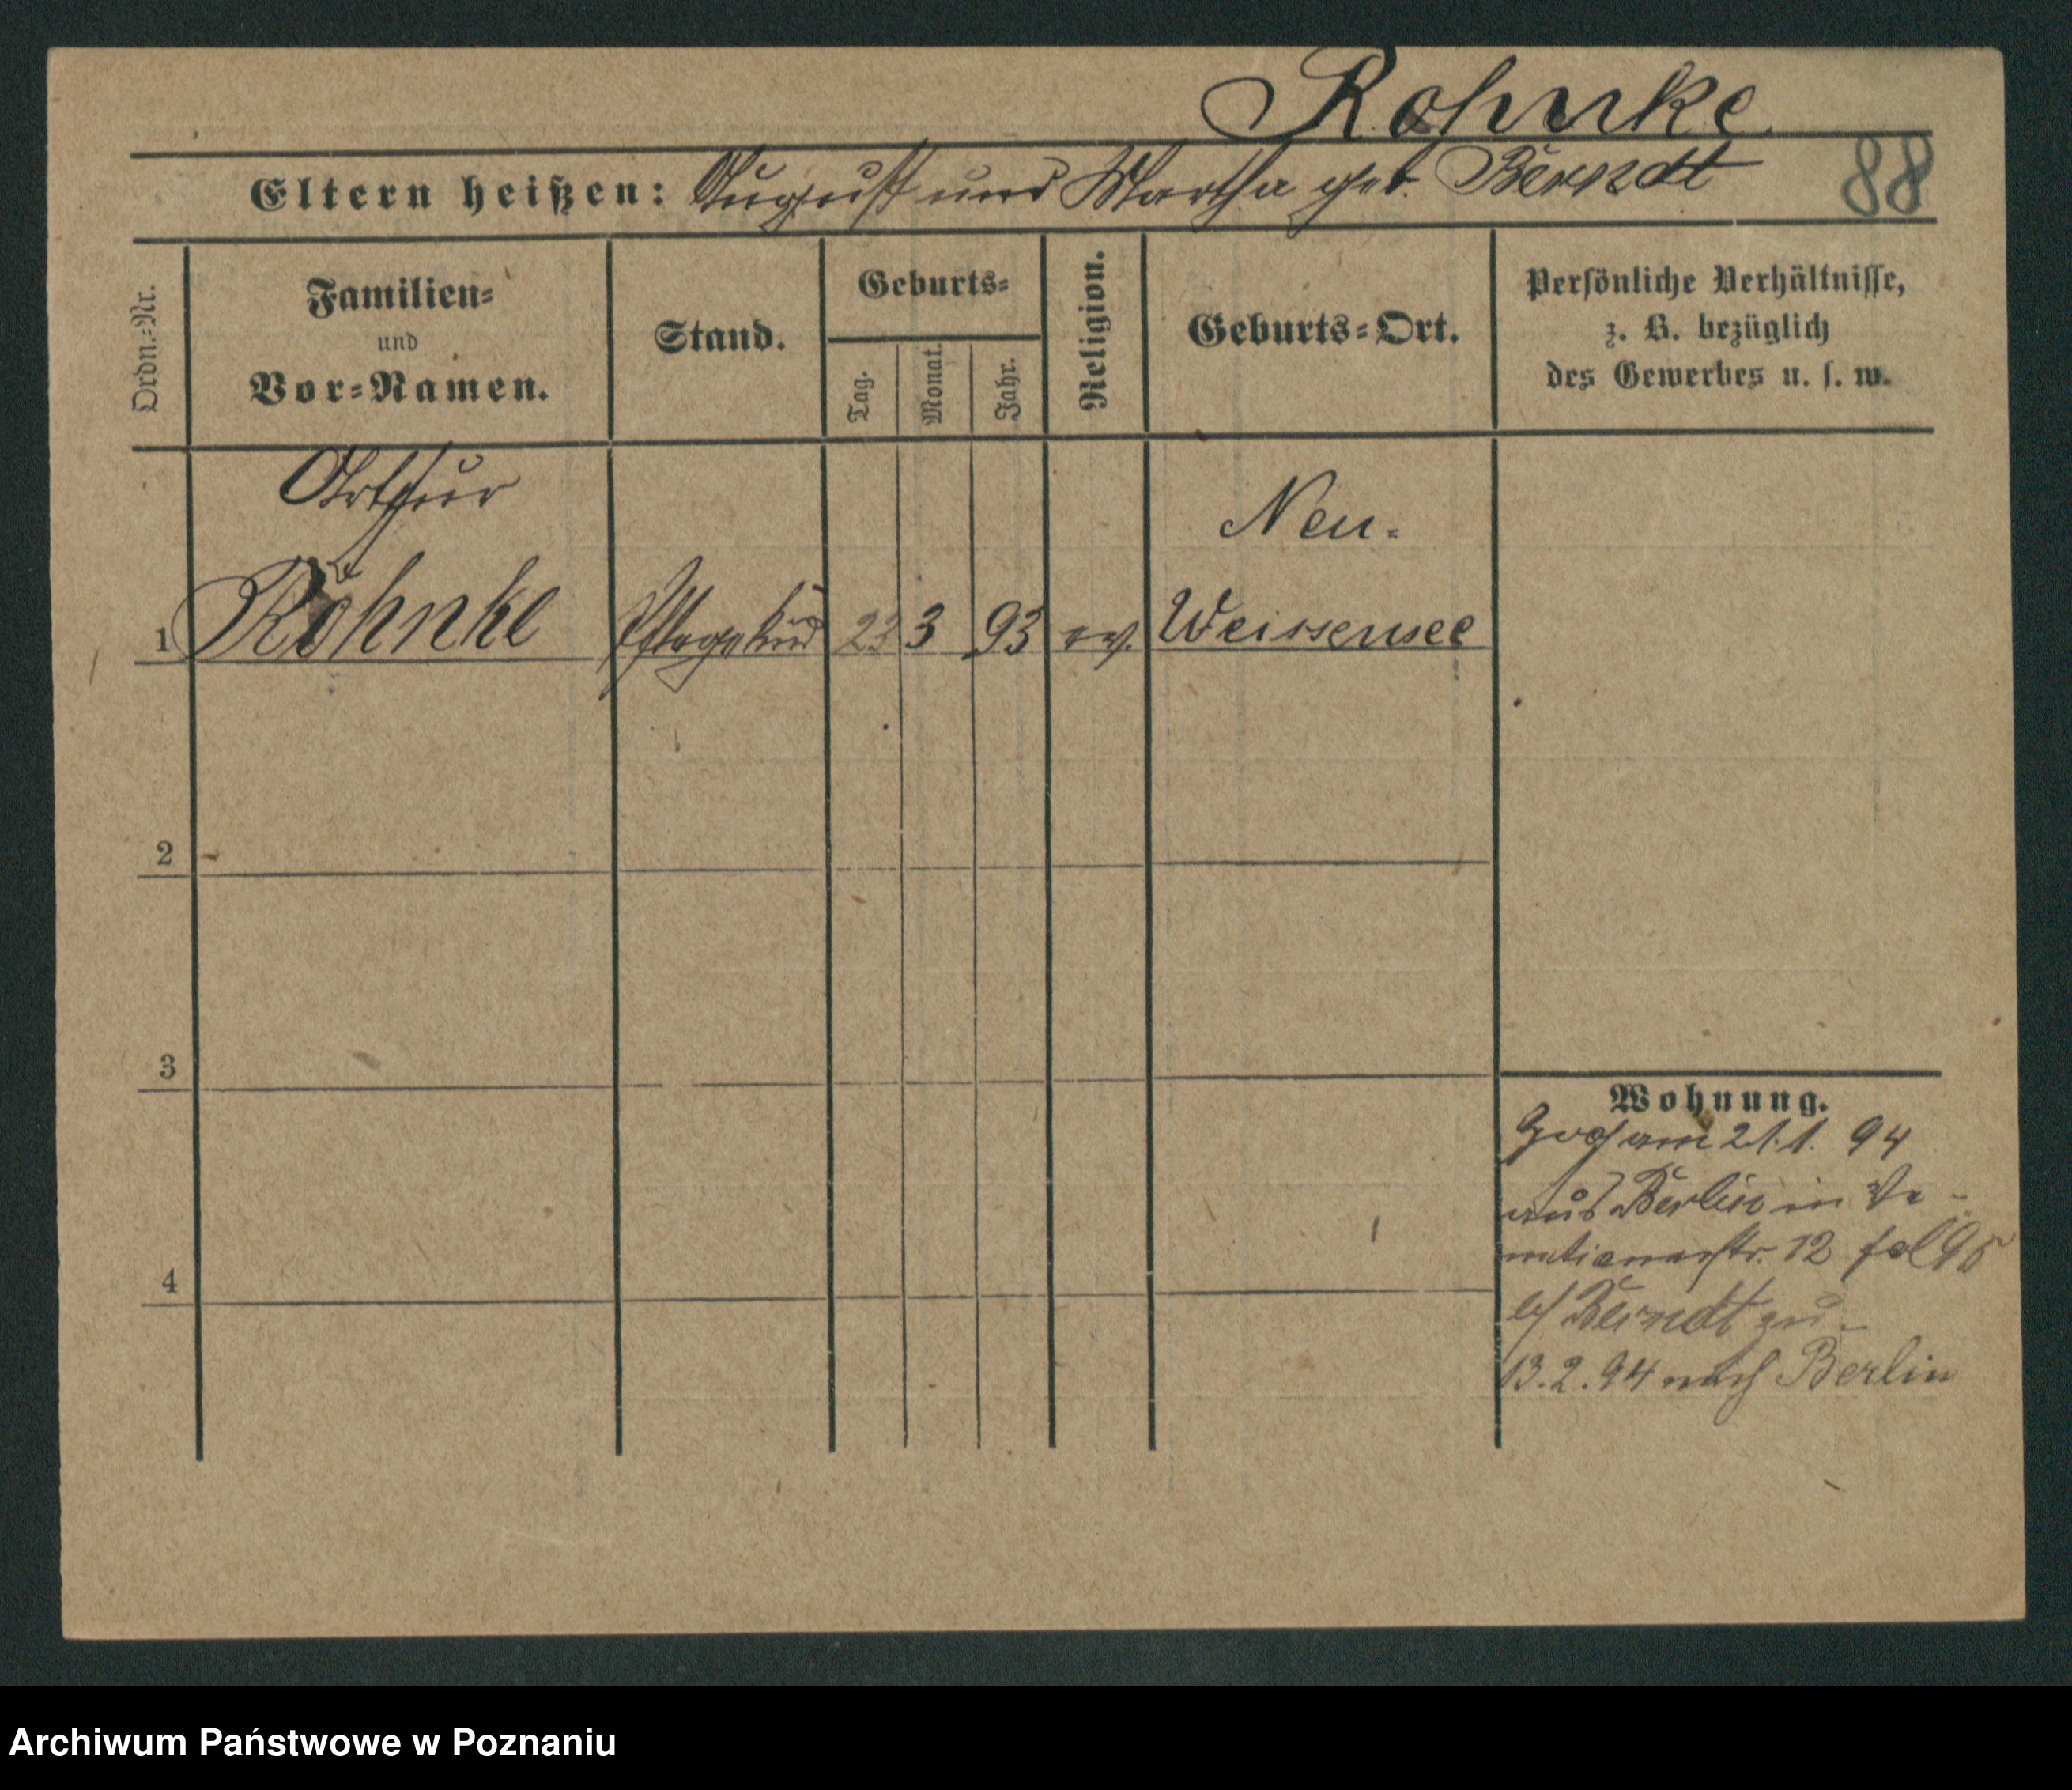 Rohnke
Eltern heißen: August und Martha geb. Berndt 88
Ordn.=Nr.
Familien=
und
Vor=Namen.
Stand.
Geburts=
Tag.
Monat.
Jahr.
Religion.
Geburts=Ort.
Persönliche Verhältnisse,
z. B. bezüglich
des Gewerbes u. s. w.
Arthur
Neu-
1 Rohnke Pflegekind 23 3 93 ev. Weissensee
2
3
4
Wohnung.
Zog am 21.1. 94
aus Berlin in Ve-
12 fol 95
b/ Berndt zu-
13.2.94 nach Berlin
Archiwum Państwowe w Poznaniu